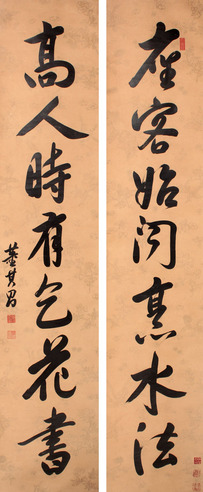 座客始問烹水法
高人時有乞花書
董其昌